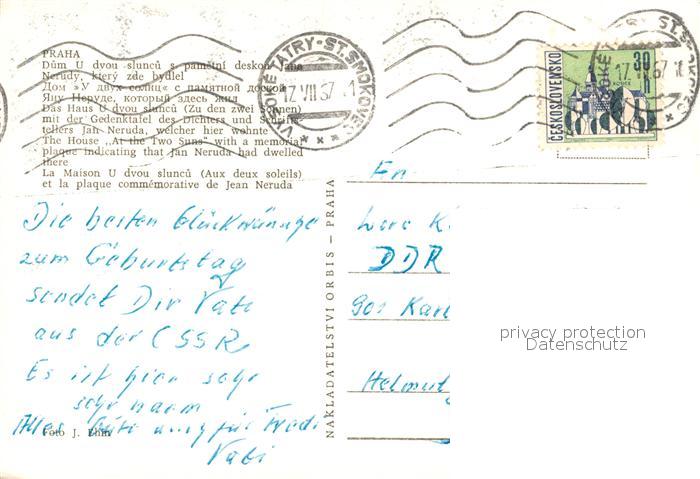 PRAHA
Dům U dvou slunců s pamětní deskou Jana
Nerudy, který zde bydlel
Дом »У двух солнц« с памятной доской
Яну Неруде, который здесь жил
Das Haus U dvou slunců (Zu den zwei Sonnen)
mit der Gedenktafel des Dichters und Schrift-
tellers Jan Neruda, welcher hier wohnte
The House „At the Two Suns" with a memorial
plaque indicating that Jan Neruda had dwelled
there
La Maison U dvou slunců (Aux deux soleils)
et la plaque commémorative de Jean Neruda
VYSOKÉ TATRY-ST.SMOKOVEC
17.VII.67
ČESKOSLOVENSKO
30 h
Die besten Glückwünsche
zum Geburtstag
sendet Dir Vati
aus der CSSR
Es ist hier sehr
sehr warm
Alles Gute auch für
Vati
Foto J. Ehm
NAKLADATELSTVÍ ORBIS – PRAHA
DDR
901 Karl
Helmut
privacy protection
Datenschutz